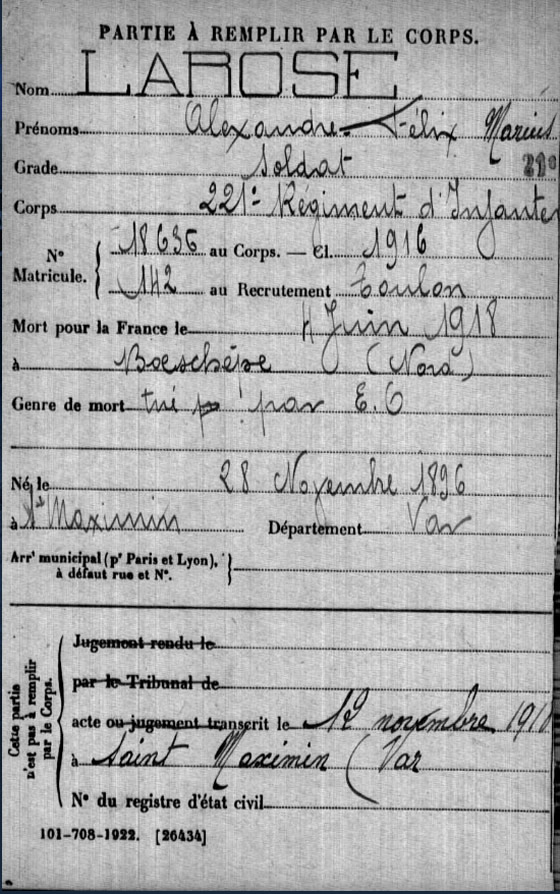 PARTIE À REMPLIR PAR LE CORPS.
Nom LAROSE
Prénoms Alexandre Félix Marius
Grade Soldat
Corps 221e Régiment d'Infanter
N° Matricule. { 18636 au Corps. — Cl. 1916
142 au Recrutement Toulon
Mort pour la France le 4 Juin 1918
à Boeschépe (Nord)
Genre de mort tué par E.O
Né le 28 Novembre 1896
à St Maximin Département Var
Arrt municipal (pr Paris et Lyon), à défaut rue et N°.
Cette partie n'est pas à remplir par le Corps.
Jugement rendu le
par le Tribunal de
acte ou jugement transcrit le 12 novembre 191
à Saint Maximin (Var
N° du registre d'état civil
101-708-1922. [26434]